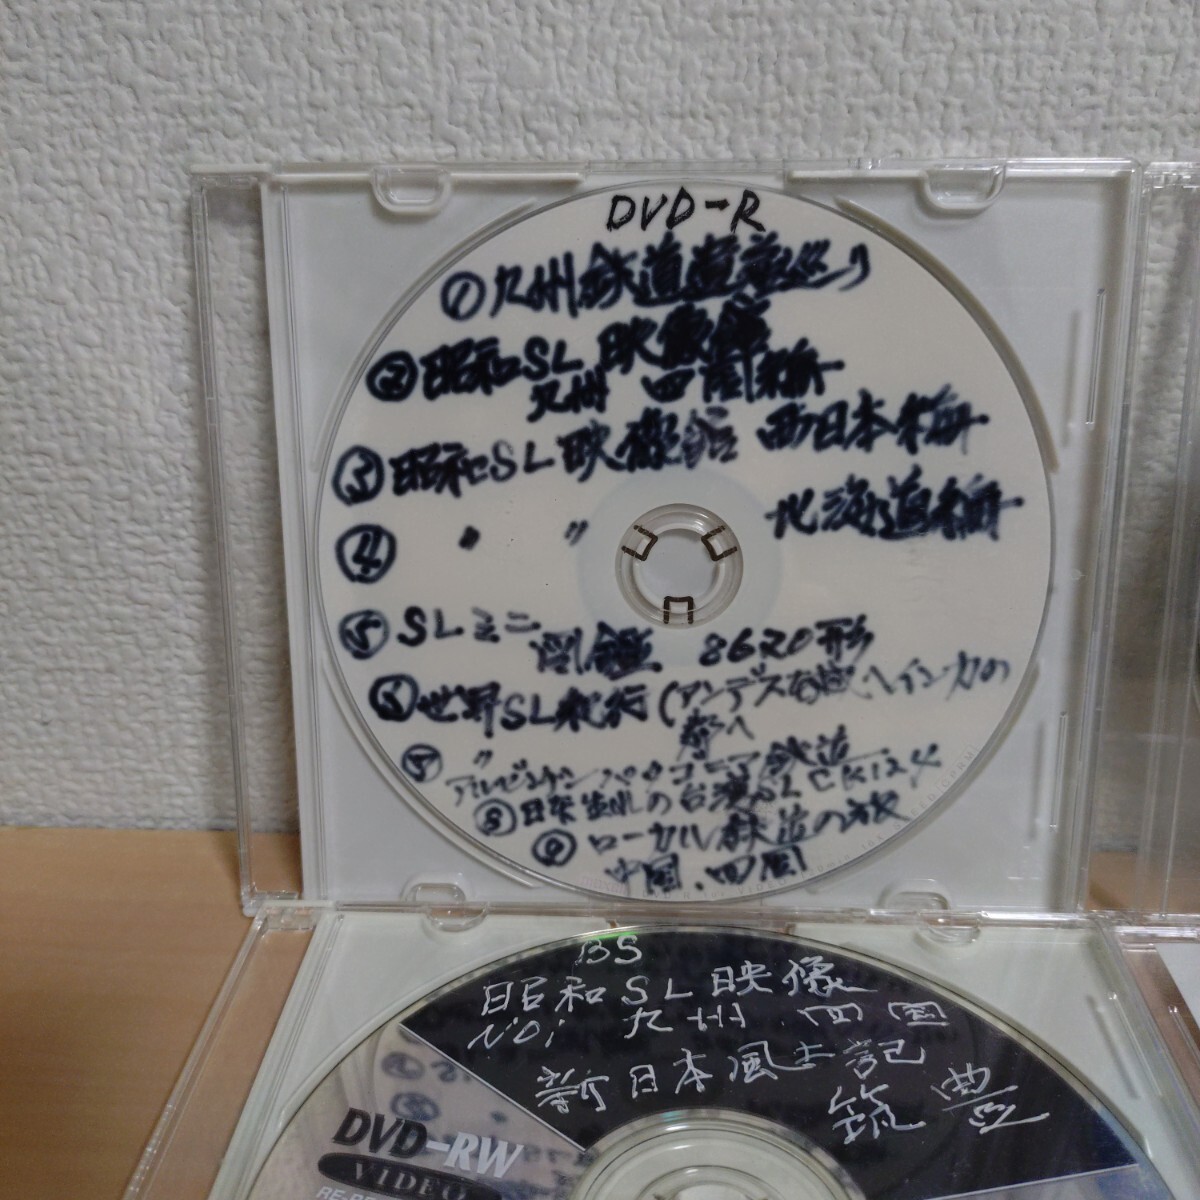 DVD-R
①九州鉄道遺産巡り
②昭和SL映像館
九州 四国編
③昭和SL映像館 西日本編
④ 〃 〃 北海道編
⑤SLミニ
図鑑 8620形
世界SL紀行(アンデス 越へインカの
都へ
〃
アルゼンチン パタゴニア鉄道
⑧日本生れの台湾SL CK124
⑨ローカル鉄道の旅
中国、四国
BS
昭和SL映像
NO1 九州 四国
新日本風土記
筑豊
DVD-RW
VIDEO